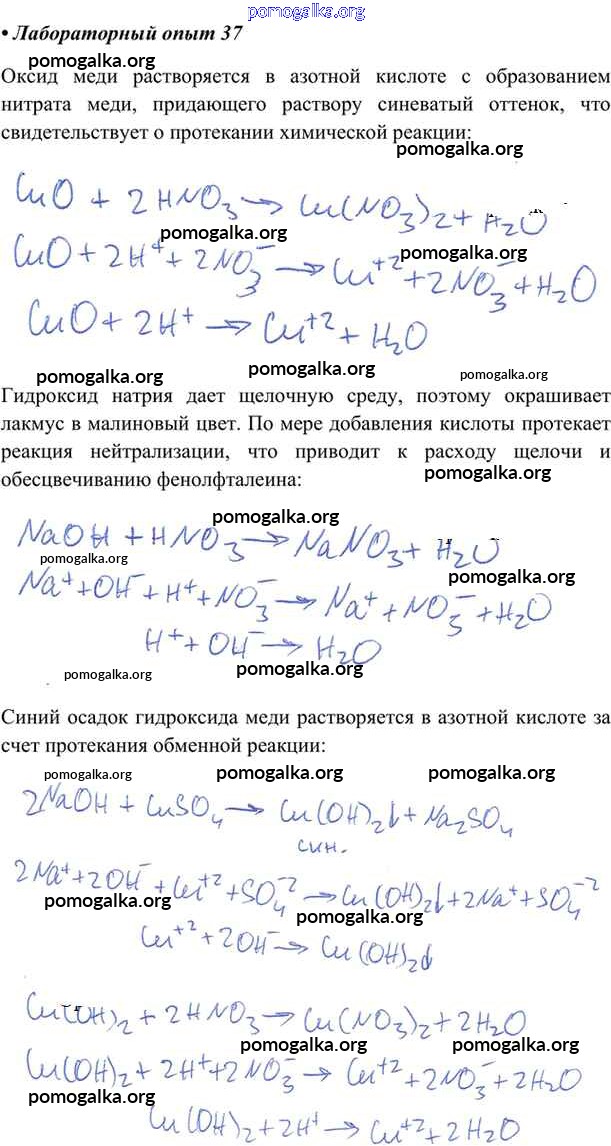 pomogalka.org
• Лабораторный опыт 37
pomogalka.org pomogalka.org
Оксид меди растворяется в азотной кислоте с образованием
нитрата меди, придающего раствору синеватый оттенок, что
свидетельствует о протекании химической реакции:
pomogalka.org
CuO + 2HNO₃ → Cu(NO₃)₂ + H₂O
pomogalka.org
CuO + 2H⁺ + 2NO₃⁻ → Cu⁺² + 2NO₃⁻ + H₂O
pomogalka.org
CuO + 2H⁺ → Cu⁺² + H₂O
pomogalka.org pomogalka.org pomogalka.org
Гидроксид натрия дает щелочную среду, поэтому окрашивает
лакмус в малиновый цвет. По мере добавления кислоты протекает
реакция нейтрализации, что приводит к расходу щелочи и
обесцвечиванию фенолфталеина:
pomogalka.org
pomogalka.org
NaOH + HNO₃ → NaNO₃ + H₂O
pomogalka.org
pomogalka.org
Na⁺ + OH⁻ + H⁺ + NO₃⁻ → Na⁺ + NO₃⁻ + H₂O
H⁺ + OH⁻ → H₂O
pomogalka.org pomogalka.org
Синий осадок гидроксида меди растворяется в азотной кислоте за
счет протекания обменной реакции:
pomogalka.org pomogalka.org pomogalka.org
2NaOH + CuSO₄ → Cu(OH)₂↓ + Na₂SO₄
син.
2Na⁺ + 2OH⁻ + Cu⁺² + SO₄⁻² → Cu(OH)₂↓ + 2Na⁺ + SO₄⁻²
pomogalka.org pomogalka.org
Cu⁺² + 2OH⁻ → Cu(OH)₂↓
Cu(OH)₂ + 2HNO₃ → Cu(NO₃)₂ + 2H₂O
Cu(OH)₂ + 2H⁺ + 2NO₃⁻ → Cu⁺² + 2NO₃⁻ + 2H₂O
pomogalka.org pomogalka.org
Cu(OH)₂ + 2H⁺ → Cu⁺² + 2H₂O